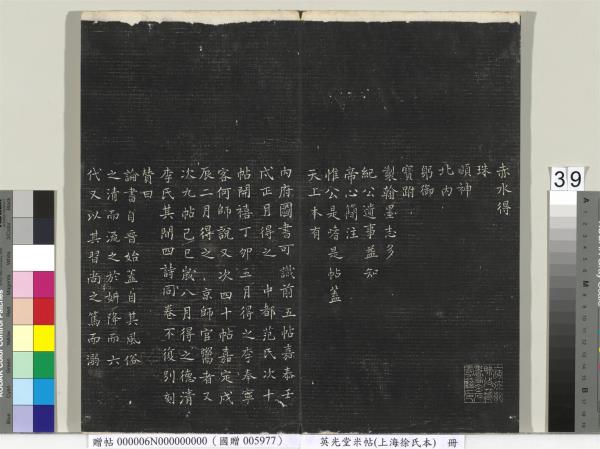 赤水得
珠
頤神
北内
躬御
寶跗
製翰墨志多
紀公遺事益知
帝心簡注
惟公是嗜是帖蓋
天上本有
内府圖書可識前五帖嘉泰壬
戌正月得之中都范氏次十
帖開禧丁卯三月得之李奉寧
客何師說又次四十帖嘉定戊
辰二月得之京師官鬻者又
次九帖己巳歲八月得之德清
李氏其間四詩同卷不復別刻
贊曰
論書自晉始蓋自其風俗
之清而流之於妍降而六
代又以其習尚之篤而溺
39
贈帖 000006N000000000 (國贈 005977) 英光堂米帖(上海徐氏本) 冊